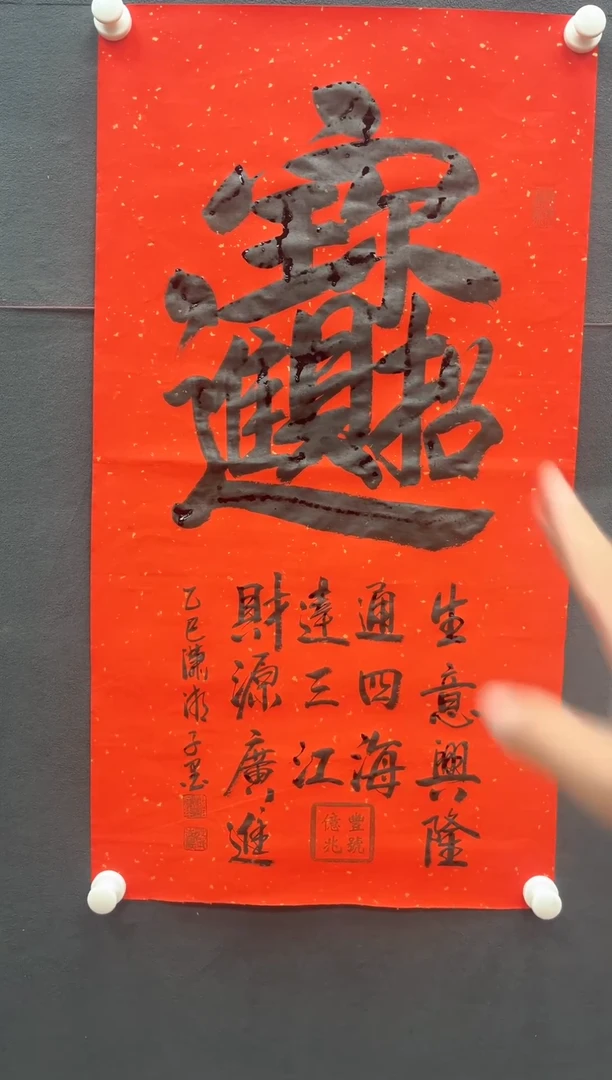 招財進寶
生意興隆
通四海
達三江
財源廣進
乙巳瀟湘子墨
豐號
億兆